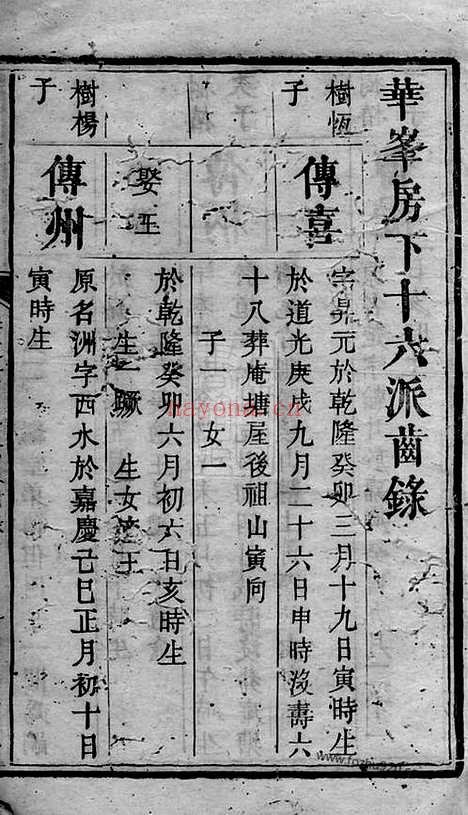 華峯房下十六派齒錄
樹恆
子
傳喜
字昇元於乾隆癸卯三月十九日寅時生
於道光庚戌九月二十六日申時沒壽六
十八葬庵塘屋後祖山寅向
子一 女一
娶王
於乾隆癸卯六月初六日亥時生
生一 生女 王
樹楊
子
傳州
原名洲字西水於嘉慶己巳正月初十日
寅時生
nayona.cn